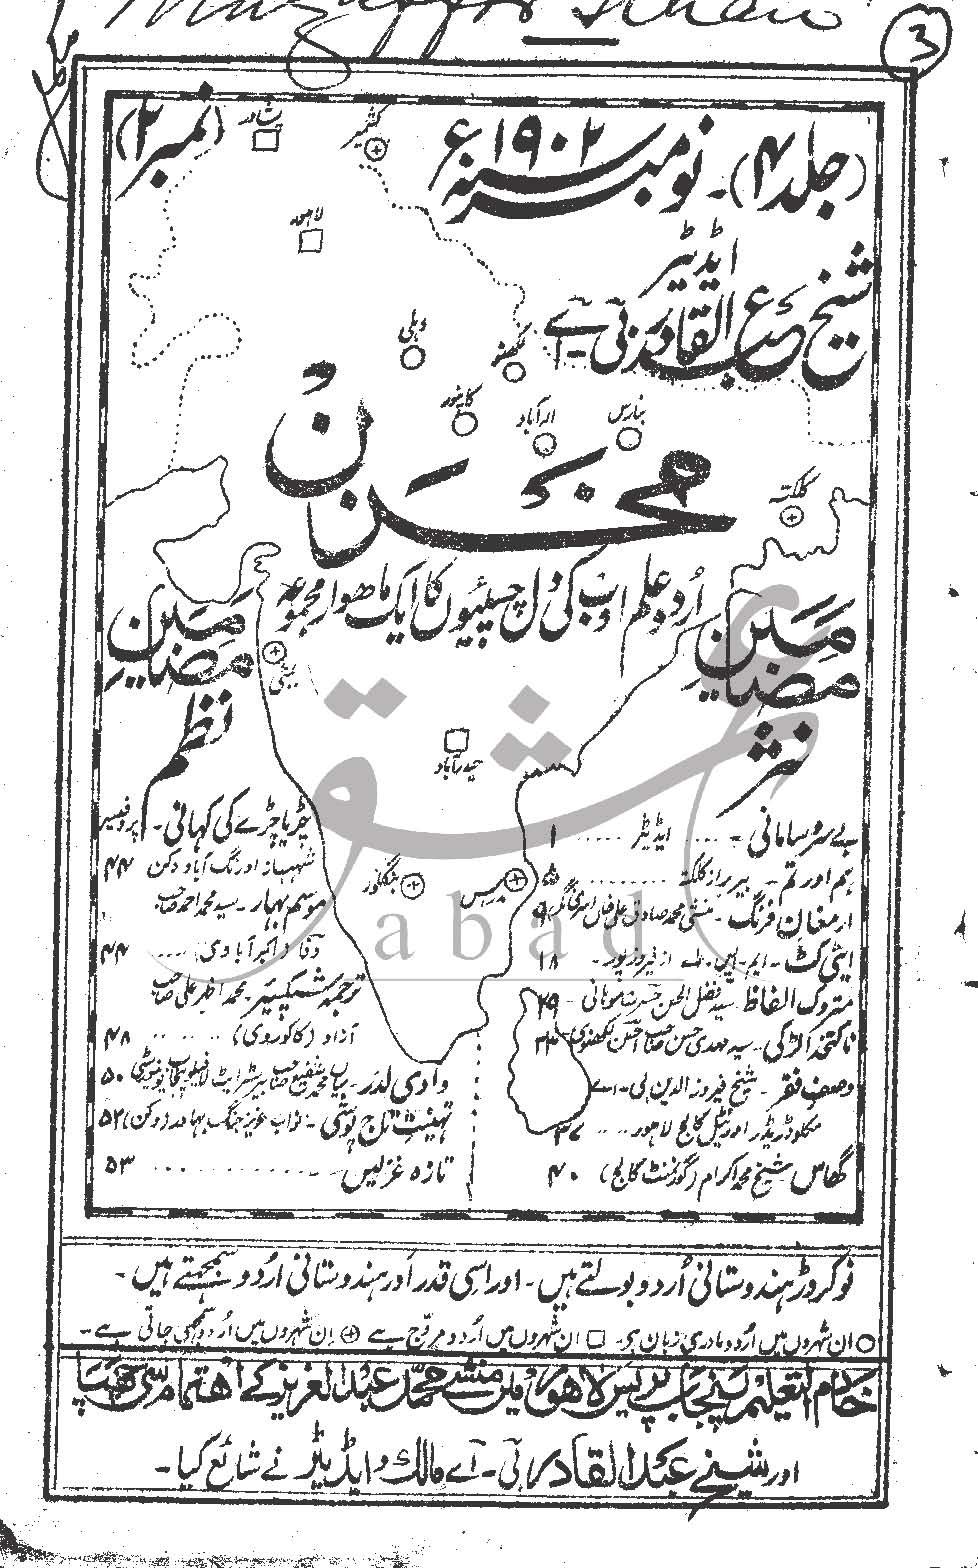 3
(جلد ۴)۔ نومبر سنہ ۱۹۰۲ء (نمبر ۲)
پشاور
کشمیر
لاہور
ایڈیٹر
شیخ عبدالقادر بی۔ اے
دہلی
لکھنؤ
کانپور
الہ آباد
بنارس
کلکتہ
مخزن
اُردو علم ادب کی دلچسپیوں کا ایک ماہوار مجموعہ
بمبئی
حیدرآباد
بنگلور
مدراس
مضامین نثر
بے سروسامانی ۔ .... ایڈیٹر ..... ۱
ہم اور تم ۔ پیرراز کلکتہ ......... ۵
ارمغانِ فرنگ ۔ منشی محمد صادق علی خاں
ایٹی کٹ ۔ ایم۔ ایس۔ اے از فیروزپور ۔ ۱۸
متروک الفاظ ۔ سید فضل الحسن حسرت موہانی ۔ ۲۹
ناکتخدا لڑکی ۔ سید مہدی حسن صاحب احسن لکھنوی
وصفِ فقر ۔ شیخ فیروز الدین بی۔ اے
میکلوڈ ریڈر اورینٹل کالج لاہور .... ۳۷
گھاس شیخ محمد اکرام (گورنمنٹ کالج) ۴۰
مضامین نظم
چڑیا چڑے کی کہانی ۔ پروفیسر
شہباز اورنگ آباد دکن ۴۴
موسم بہار ۔ سید محمد احمد صاحب
(اکبرآبادی) .... ۴۴
ترجمہ شیکسپیر ۔ محمد اظہر علی صاحب
آزاد (کاکوروی) ...... ۴۸
وادی لدر ۔ میاں محمد شفیع صاحب بیرسٹر ایٹ لا فیلو پنجاب یونیورسٹی ۵۰
تہنیت تاج پوشی ۔ نواب عزیز جنگ بہادر (دکن) ۵۲
تازہ غزلیں ۔ ........... ۵۳
نو کروڑ ہندوستانی اُردو بولتے ہیں ۔ اور اسی قدر اور ہندوستانی اُردو سمجھتے ہیں ۔
○ ان شہروں میں اُردو مادری زبان ہے ۔ □ ان شہروں میں اُردو مروّج ہے ⊕ اِن شہروں میں اُردو سمجھی جاتی ہے ۔
خادم التعلیم پنجاب پریس لاہور میں منشی محمد عبدالعزیز کے اہتمام سے چھپا
اور شیخ عبدالقادر بی ۔ اے مالک و ایڈیٹر نے شائع کیا ۔
عشق
abad